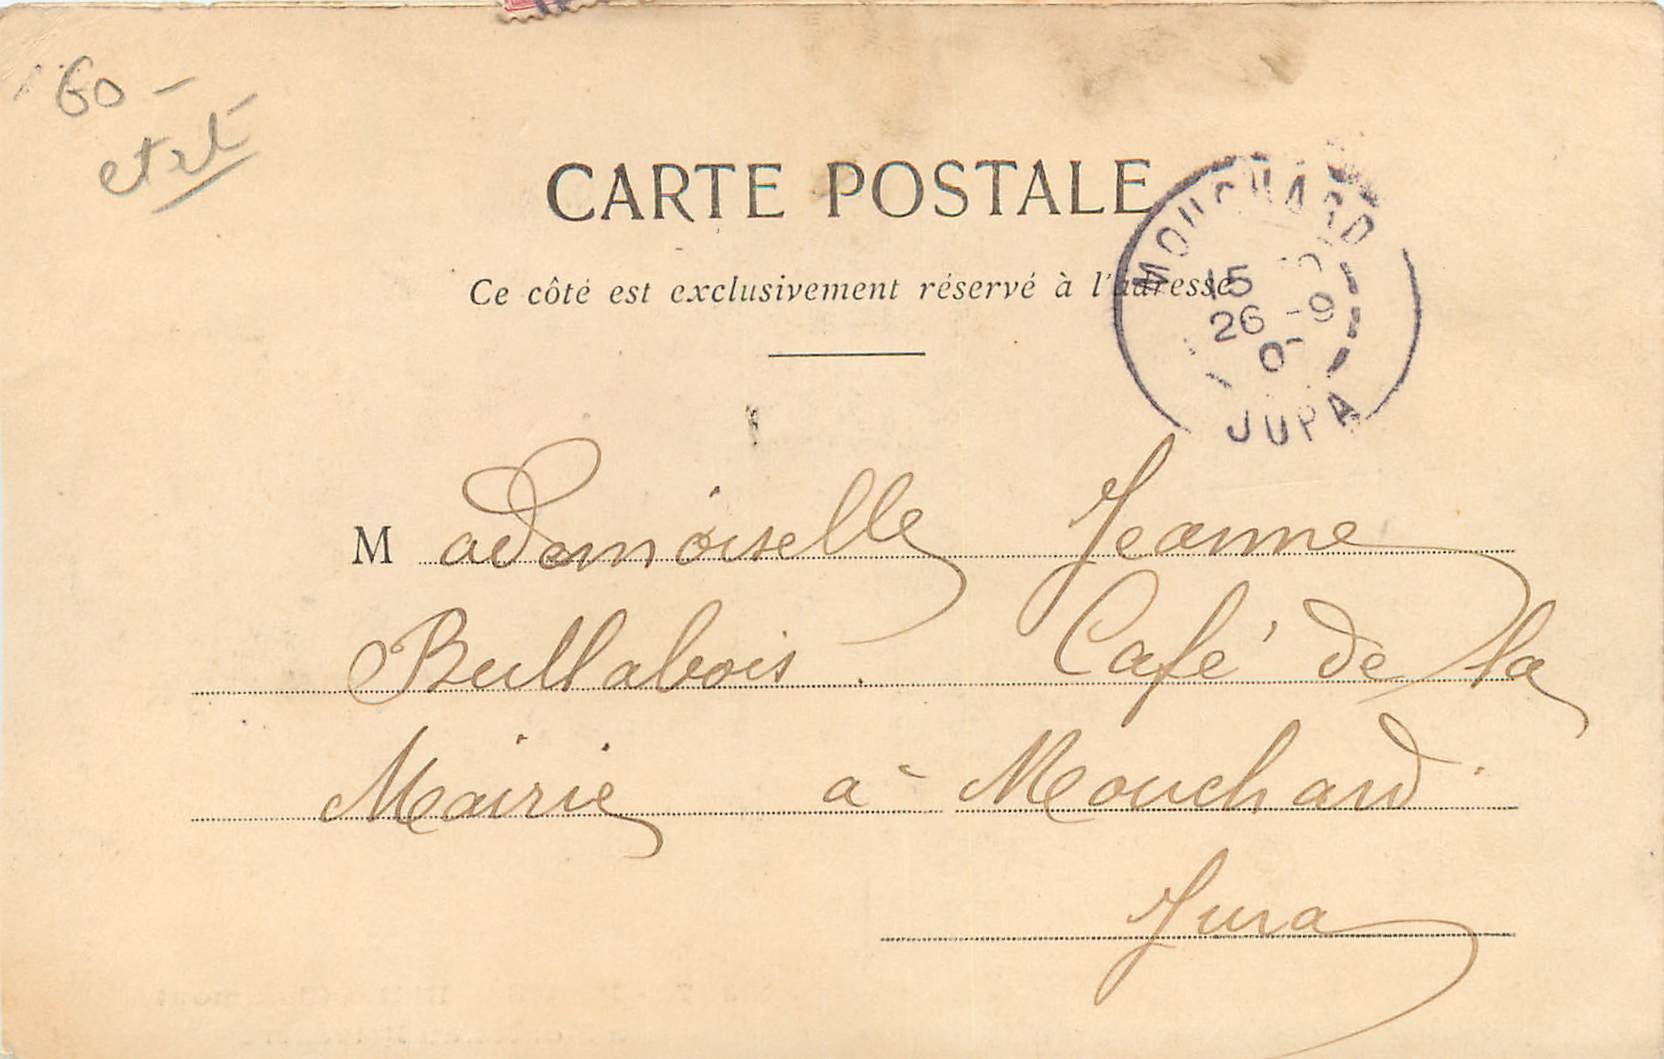 60 -
CARTE POSTALE
Ce côté est exclusivement réservé à l'adresse
MOUCHARD
15
26 - 9
0
JURA
Mademoiselle Jeanne
Bullabois. Café de la
Mairie à Mouchard
Jura